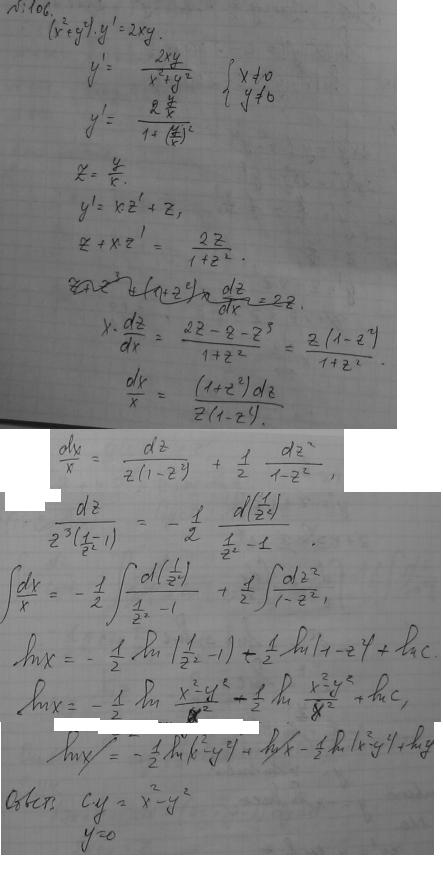 № 106.
(x²+y²)·y' = 2xy.
y' = 2xy / (x²+y²) { x≠0 y≠0
y' = 2 y/x / (1+(y/x)²)
z = y/x.
y' = x·z' + z,
z + x·z' = 2z / (1+z²).
x·dz/dx = (2z-z-z³) / (1+z²) = z(1-z²) / (1+z²).
dx/x = (1+z²)dz / z(1-z²).
dx/x = dz / z(1-z²) + 1/2 dz² / (1-z²),
dz / z³(1/z²-1) = - 1/2 d(1/z²) / (1/z²-1).
∫dx/x = - 1/2 ∫ d(1/z²) / (1/z²-1) + 1/2 ∫ dz² / (1-z²),
lnx = - 1/2 ln|1/z²-1| - 1/2 ln|1-z²| + lnc.
lnx = - 1/2 ln (x²-y²)/y² - 1/2 ln (x²-y²)/x² + lnc,
lnx = - 1/2 ln|x²-y²| + lnx - 1/2 ln|x²-y²| + lny
Ответ: cy = x²-y²
y=0